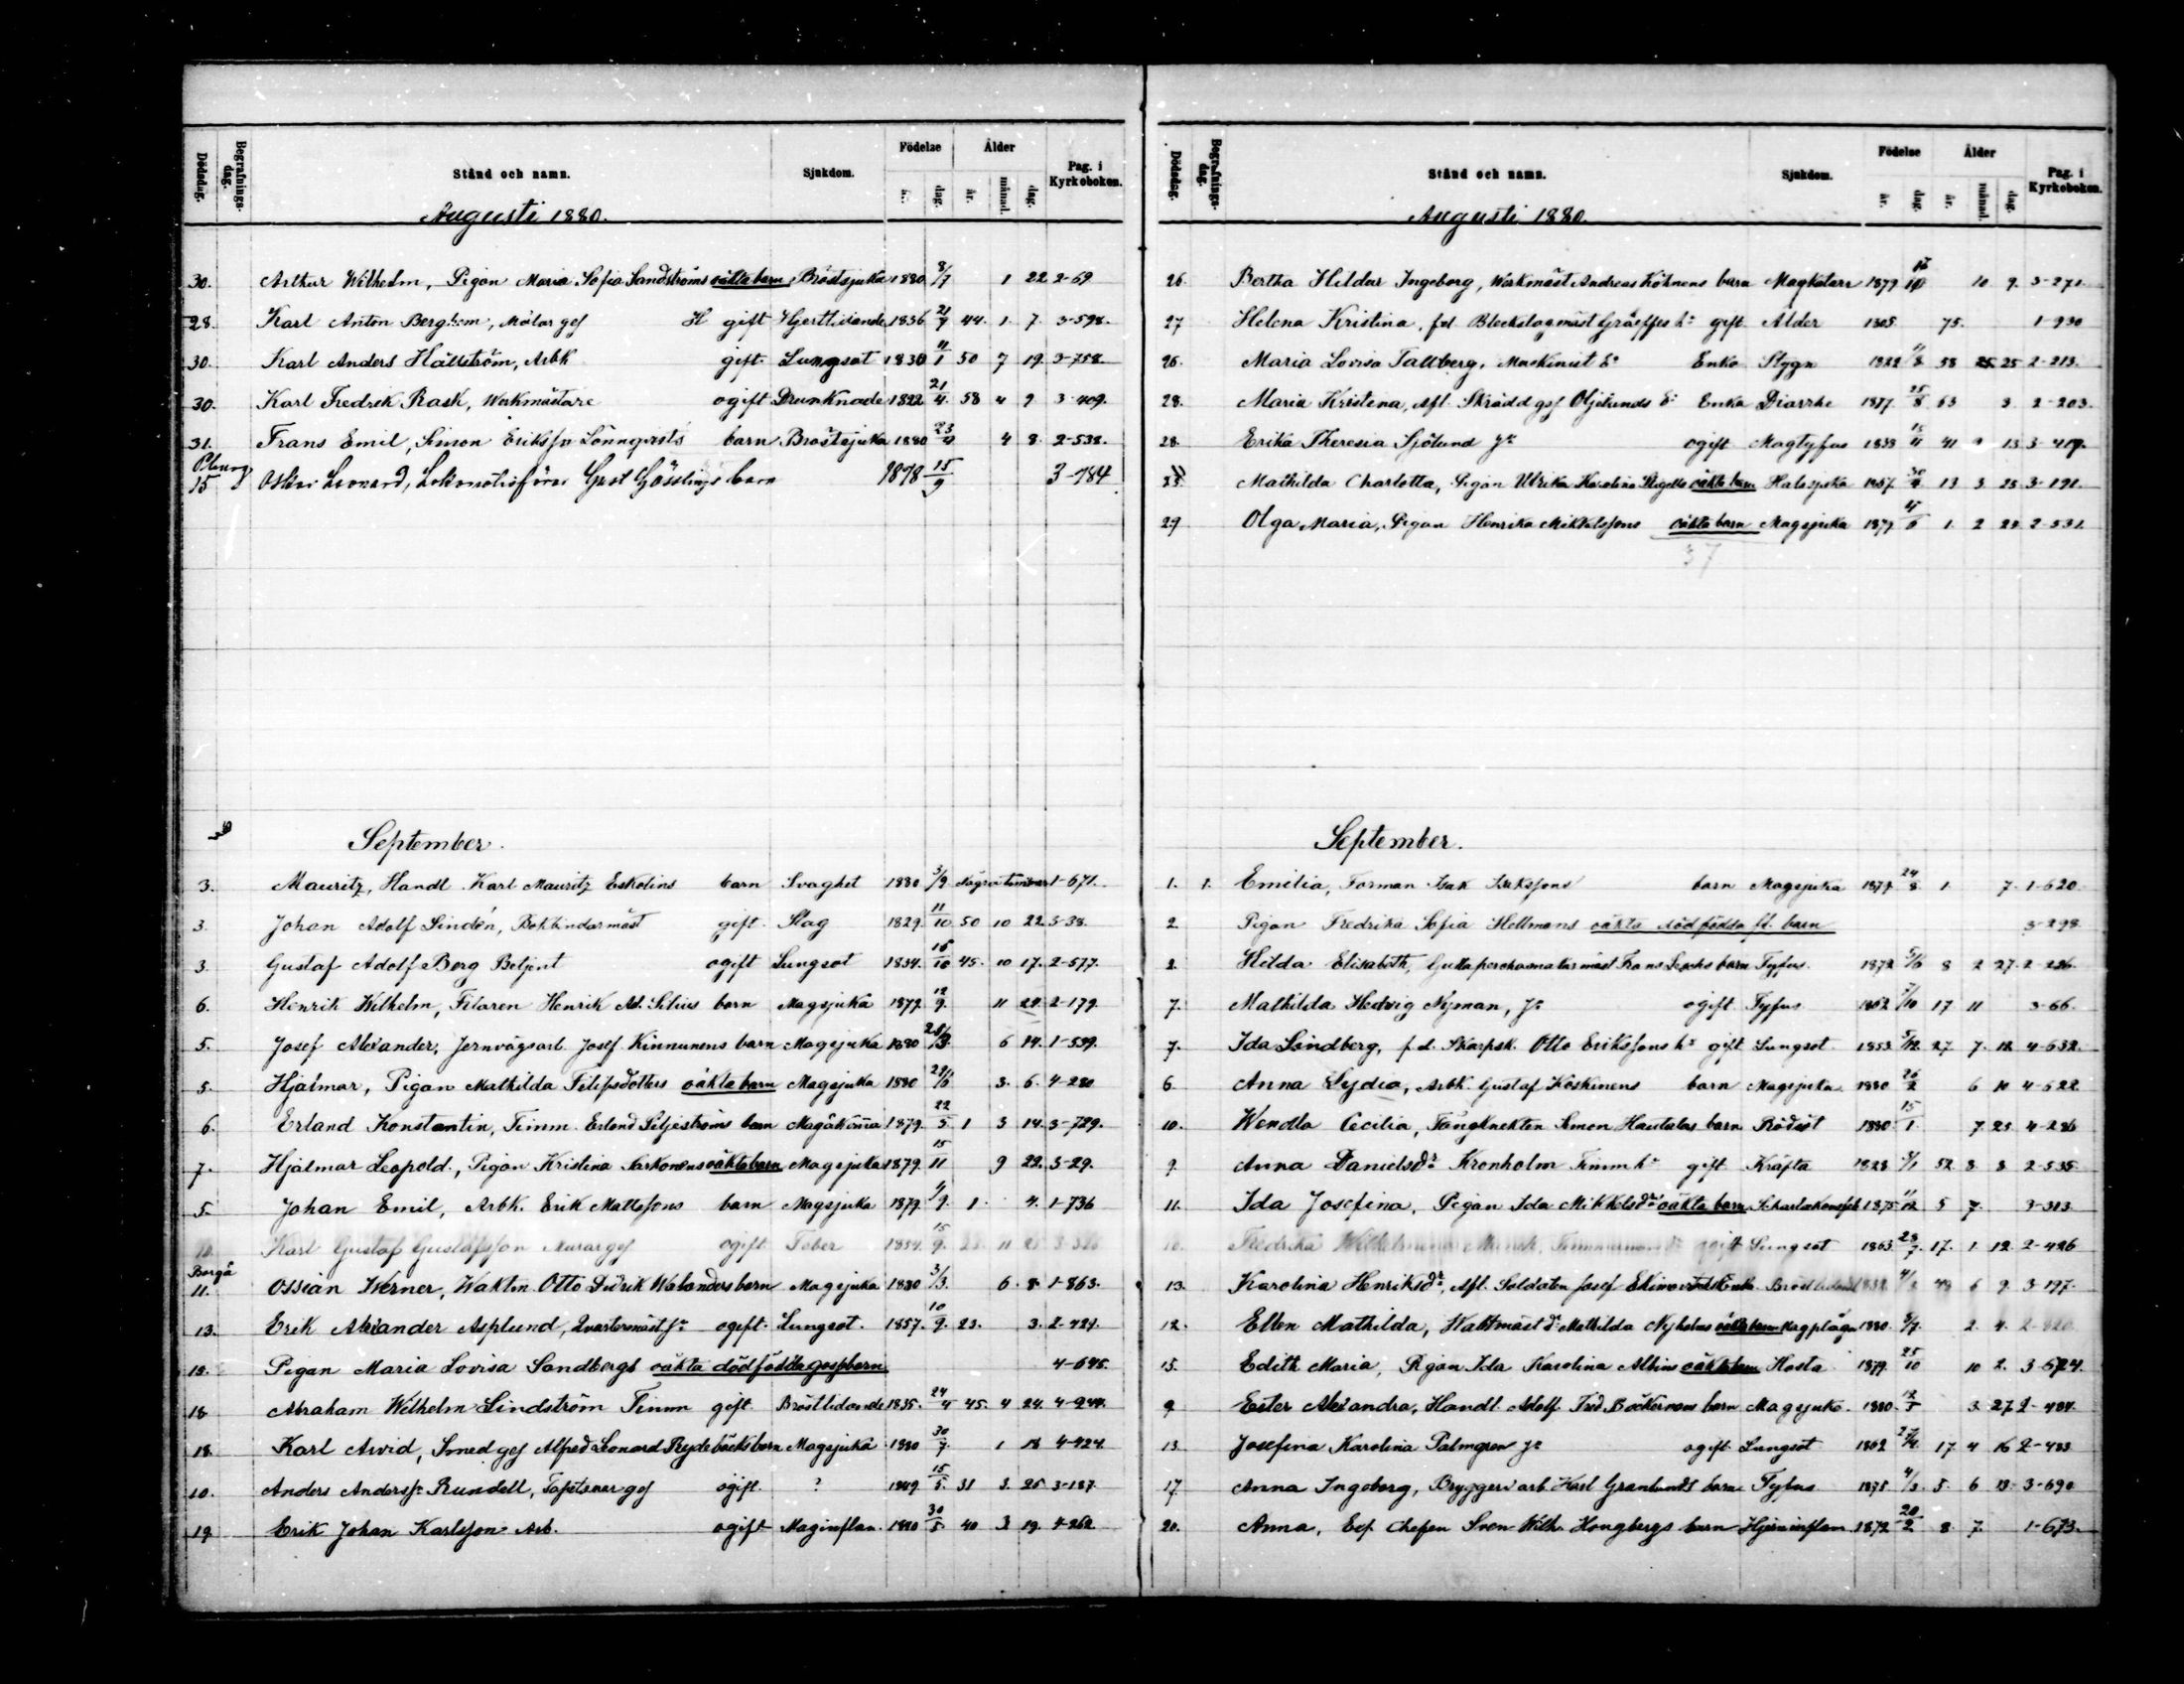 Dödsdag. Begrafnings-dag. Stånd och namn. Sjukdom. Födelse år. dag. Ålder år. månad. dag. Pag. i Kyrkoboken.
Augusti 1880.
30. Arthur Wilhelm, Pigan Maria Sofia Sandströms oäkta barn Bröstsjuka 1880 8/7 1 22 2-69
28. Karl Anton Berghem, Målar ges H gift Hjertlidande 1836 21/7 44. 1. 7. 3-598.
30. Karl Anders Hällström, Arbk gift Lungsot 1830 11/1 50 7 19. 3-758.
30. Karl Fredrik Rask, Werkmästare ogift Drunknade 1822 21/4 58 4 9 3-409.
31. Frans Emil, Simon Eriksson Lönnqvists barn Bröstsjuka 1880 23/4 4 8. 2-538.
15 Oskar Leonard, Lokomotivförar Gust Gösslings barn 1878 15/9 3-784
September.
3. Mauritz, Handl Karl Mauritz Eskolins barn Svaghet 1880 3/9 Några timmar 1-671.
3. Johan Adolf Lindén, Bokbindarmäst gift. Slag 1829. 11/10 50 10 22. 3-38.
3. Gustaf Adolf Berg Betjent ogift Lungsot 1834. 16/10 45. 10 17. 2-577.
6. Henrik Wilhelm, Filaren Henrik Ad. Silius barn Magsjuka 1879. 12/9. 11 22. 2-179.
5. Josef Alexander, Jernvägsarb. Josef Kinnunens barn Magsjuka 1880 6 14. 1-539.
5. Hjalmar, Pigan Mathilda Filipsdotters oäkta barn Magsjuka 1880 29/5 3. 6. 4-220
6. Erland Konstantin, Timm. Erland Liljeströms barn Magåkomma 1879. 22/5 1 3 14. 3-729.
7. Hjalmar Leopold, Pigan Kristina Saskonens oäkta barn Magsjuka 1879. 15/11 9 22. 3-29.
5. Johan Emil, Arbk. Erik Mattssons barn Magsjuka 1879. 4/9. 1. 4. 1-736
Karl Gustaf Gustafsson Murarges ogift Feber 1854. 15/9. 11
Borgå
11. Ossian Werner, Waktm. Otto Didrik Walanders barn Magsjuka 1880 3/3. 6. 8. 1-863.
13. Erik Alexander Asplund, ogift. Lungsot. 1857. 10/9. 23. 3. 2-424.
15. Pigan Maria Lovisa Sandbergs oäkta dödfödda gossbarn 4-645.
18 Abraham Wilhelm Lindström Timm gift Bröstlidande 1835. 24/4 45. 4 24. 4-944.
18. Karl Arvid, Smed ges Alfred Leonard Frydebäcks barn Magsjuka 1880 30/7. 1 18 4-424.
10. Anders Anderss. Rundell, Tapetserar ges ogift. ? 1849. 15/5. 31 3. 25 3-187
19. Erik Johan Karlsson Arb. ogift Maginflam. 1840 30/5. 40 3 19. 4-262.
Dödsdag. Begrafnings-dag. Stånd och namn. Sjukdom. Födelse år. dag. Ålder år. månad. dag. Pag. i Kyrkoboken.
Augusti 1880.
26. Bertha Hildur Ingeborg, Werkmäst Andreas Köhnens barn Magkatarr 1879 10 9. 3-271.
27 Helena Kristina, f.d. Bleckslagmäst Gräeffes h. gift Ålder 1805 75. 1-930
26. Maria Lovisa Tallberg, Maskinist E. Enka Slygn 1822 58 25 2-213.
28. Maria Kristina, Afl. Skrädd ges Oljelunds E. Enka Diarrhe 1817. 25/8 63 3 2-203.
28. Erika Theresia Sjölund ogift Magtyfus 1839 15/11 41 9 13 3-419.
Mathilda Charlotta, Pigan Ulrika Karolina oäkta barn Halssjuka 1867. 13 3. 25 3-191.
29 Olga Maria, Pigan Henrika Mikkelssons oäkta barn Magsjuka 1879. 1. 2 2-531.
37
September.
1. 1. Emilia, Forman Isak Isakssons barn Magsjuka 1879. 24/8 1. 7. 1-620.
2 Pigan Fredrika Sofia Hellmans oäkta dödfödda fl. barn 3-298
2. Hilda Elisabeth, barn Tyfus. 1872 5/6 8 2 27. 2-226.
7. Mathilda Hedvig Nyman, ogift Tyfus 1862 7/10 17 11 3-66.
7. Ida Lindberg, f.d. Skarpsk. Otto Erikssons h. gift Lungsot 1853. 27 7. 4-632.
6. Anna Lydia, Arbk Gustaf Koskinens barn Magsjuka. 1880 26/2 6 10 4-622.
10. Wendla Cecilia, Fångknekten Simon Hautalas barn Rödsot 1880. 15/1. 7. 25 4-286
9. Anna Danielsdr. Kronholm Timm h. gift Kräfta 1828 52 8 8 2-535.
11. Ida Josefina, Pigan Ida Mikkelsdr. oäkta barn 1875 11/12 5 7. 3-313.
Fredrika Wilhelmina gift Lungsot 1863 28/7. 17. 1. 12. 2-426
13. Karolina Henriksdr., Afl. Soldaten Josef Enka 49 6 9. 3-197.
12. Ellen Mathilda, Waktmäst d. Mathilda Nyholms oäkta barn Magplåga 1880. 2. 4.
15. Edith Maria, Pigan Ida Karolina Albins oäkta barn Hosta 1879. 25/10 10 2. 3-674.
9 Ester Alexandra, Handl. Adolf Fred. Böckermans barn Magsjuka. 1880. 3. 27. 2-484.
13. Josefina Karolina Palmgren ogift Lungsot 1862 17. 4 16 2-483
17. Anna Ingeborg, Bryggeri arb. Karl Granlunds barn Tyfus 1875 4/3. 5. 6 13. 3-690
20. Anna, Exp. Chefen Sven Wilh. Hongbergs barn Hjerninflam. 1872 20/2 8. 7. 1-673.